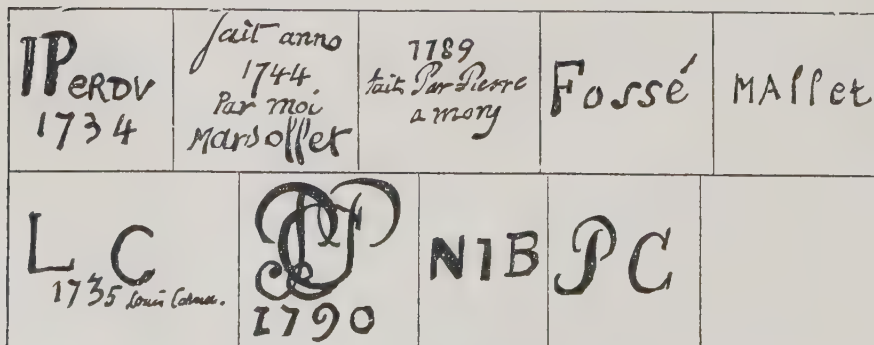 IPERDV
1734
fait anno
1744
Par moi
Marsollet
1789
fait Par Pierre
amory
Fossé
MAllet
L C
1735 Louis
1790
N1B
PC